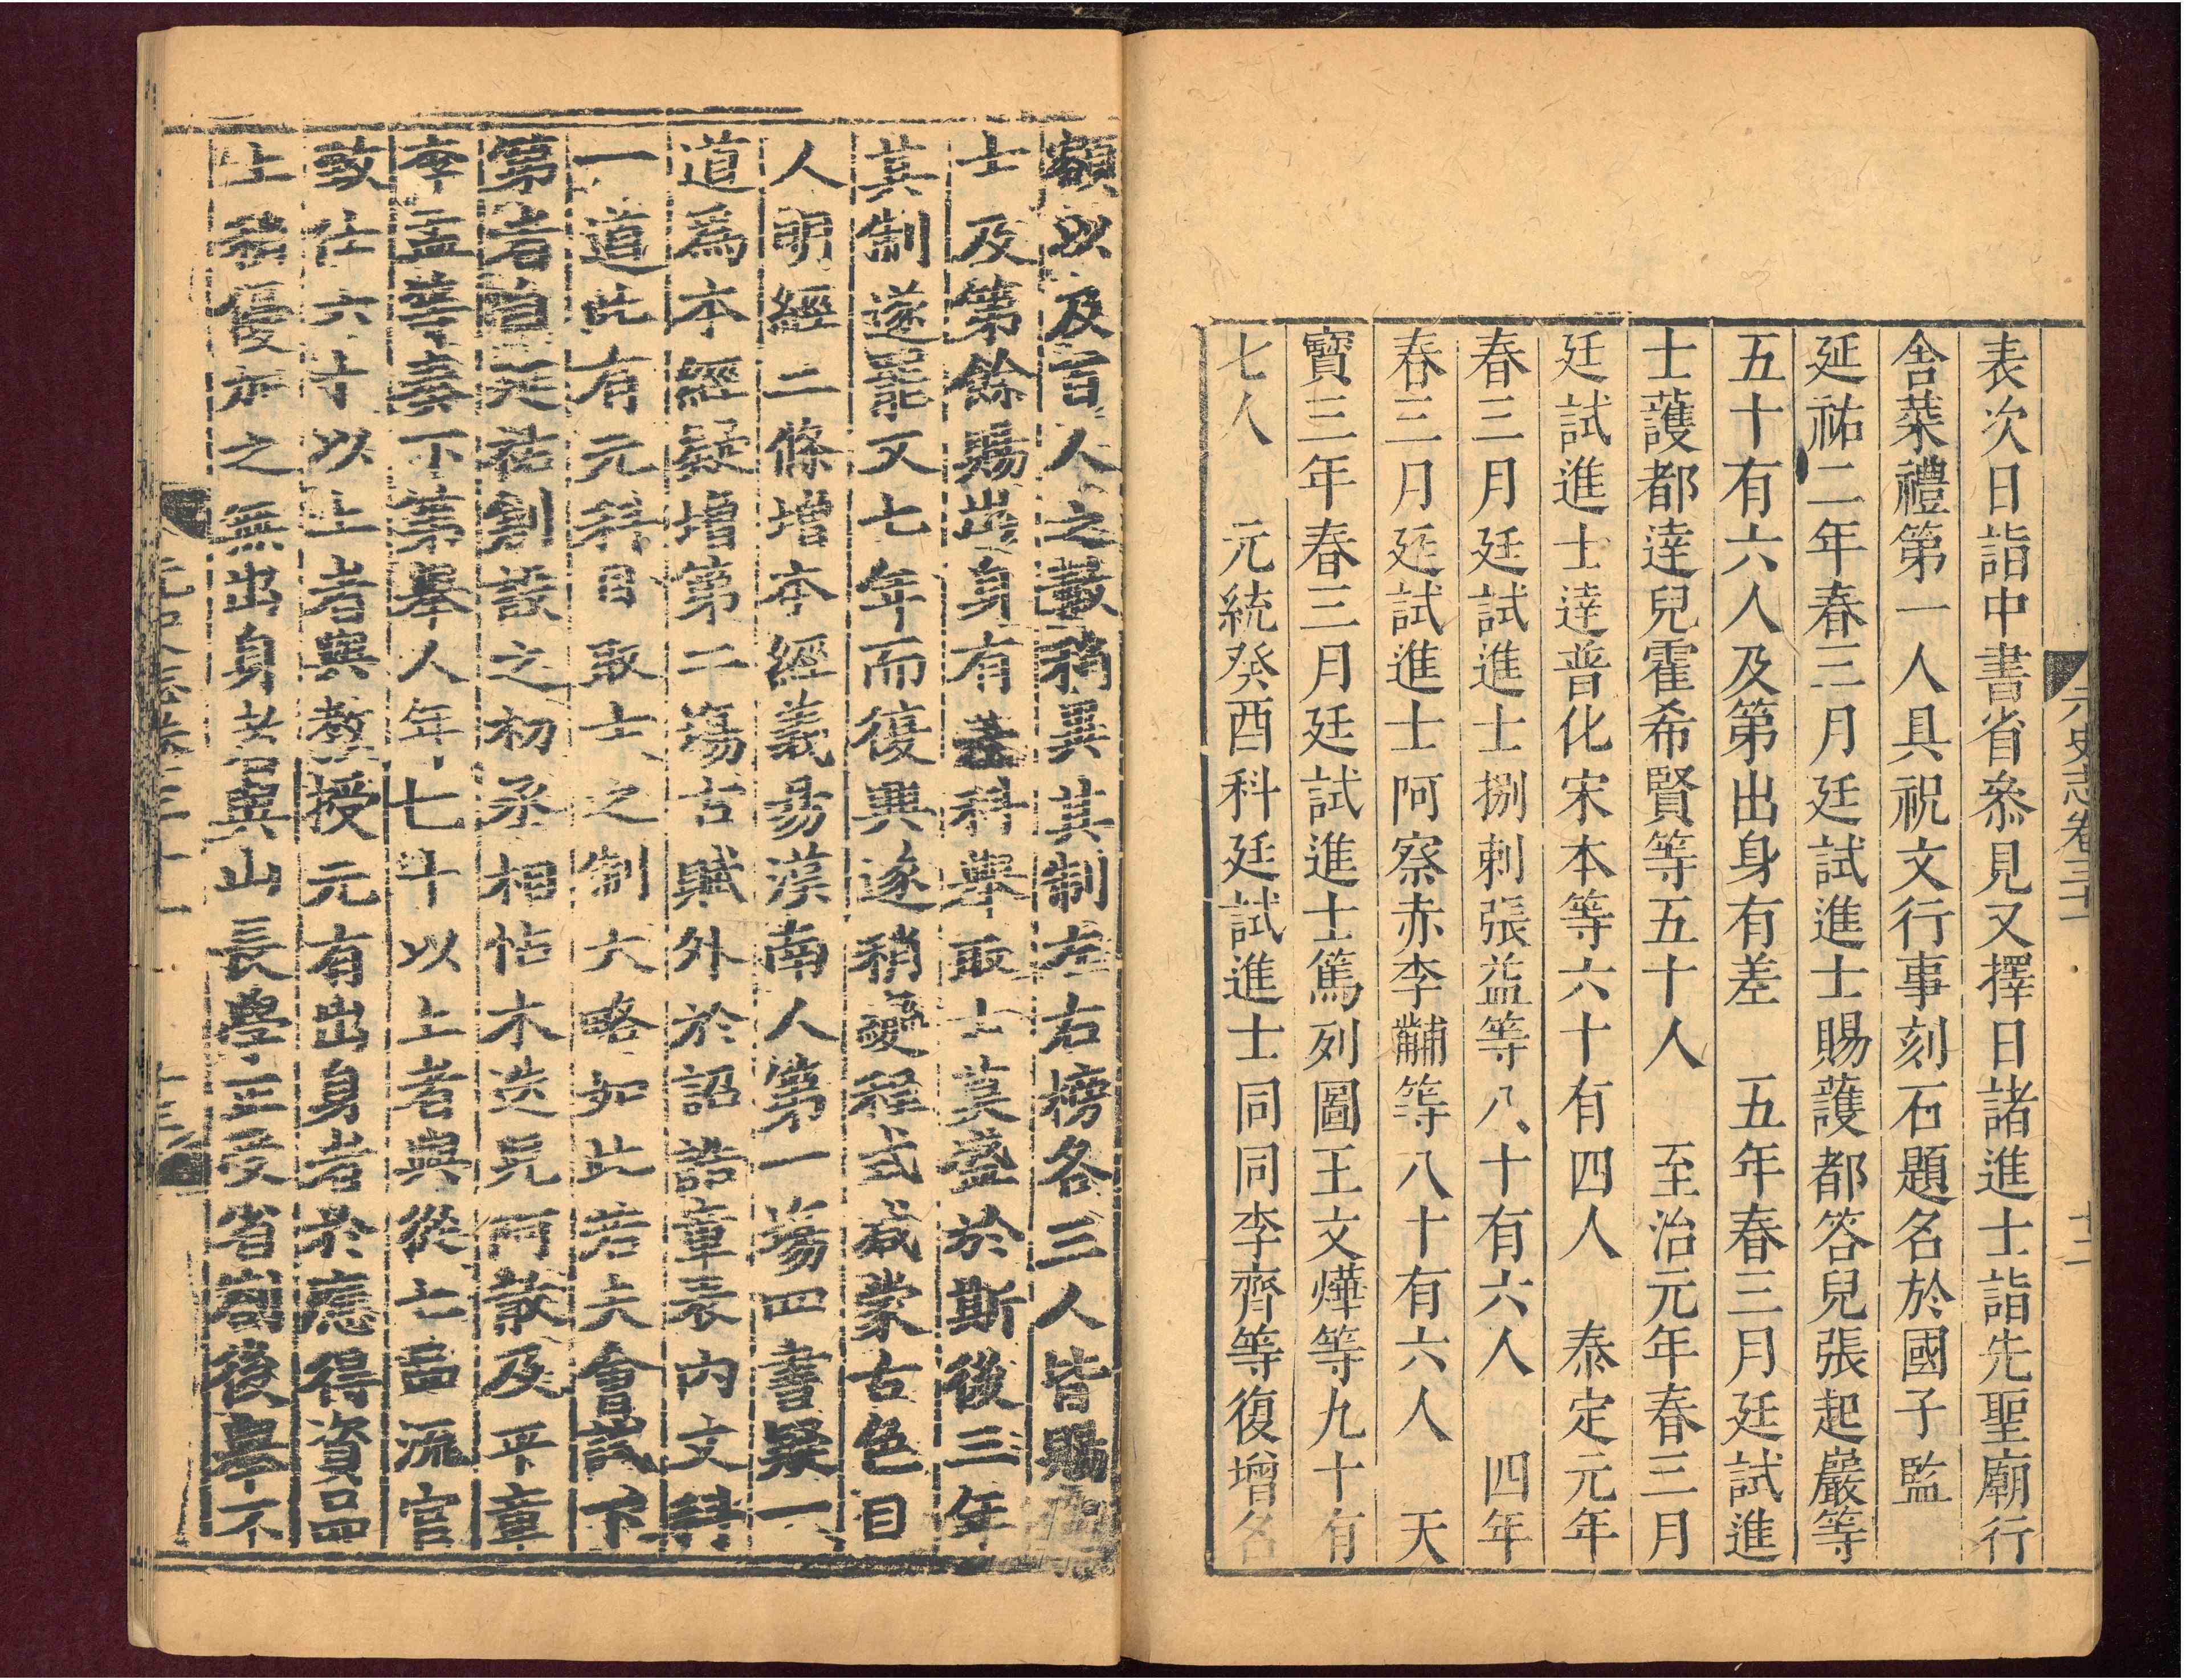 元史志卷三十一
十二
表次日詣中書省叅見又擇日諸進士詣先聖廟行
舍菜禮第一人具祝文行事刻石題名於國子監
延祐二年春三月廷試進士賜護都答兒張起巖等
五十有六人及第出身有差　五年春三月廷試進
士護都達兒霍希賢等五十人　至治元年春三月
廷試進士達普化宋本等六十有四人　泰定元年
春三月廷試進士捌剌張益等八十有六人　四年
春三月廷試進士阿察赤李黼等八十有六人　天
曆三年春三月廷試進士篤列圖王文燁等九十有
七人　元統癸酉科廷試進士同同李齊等復增名
額以及百人之數稍異其制左右榜各三人皆賜
士及第餘賜出身有差科舉取士莫盛於斯後三年
其制遂罷又七年而復興遂稍變程式減蒙古色目
人明經二條增本經義易漢南人第一場四書疑一
道爲本經疑增第二場古賦外於詔誥章表内又科
一道此有元科目取士之制大略如此若夫會試下
第者自延祐創設之初丞相怗木迭兒阿散及平章
李孟等奏下第舉人年七十以上者與從七品流官
致仕六十以上者與教授元有出身者於應得資品
上稍優加之無出身者與山長學正受省劄後舉不
元史志卷三十一
十三